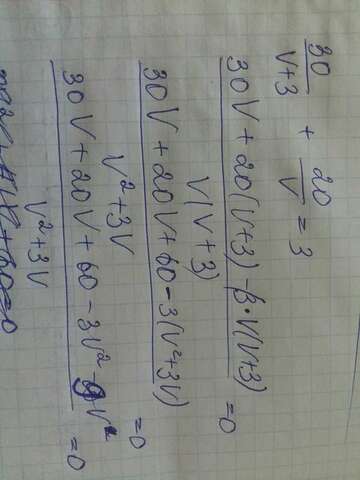 30/(V+3) + 20/V = 3
(30V + 20(V+3) - 3·V(V+3))/(V(V+3)) = 0
(30V + 20V + 60 - 3(V²+3V))/(V²+3V) = 0
(30V + 20V + 60 - 3V² - 9V²)/(V²+3V) = 0